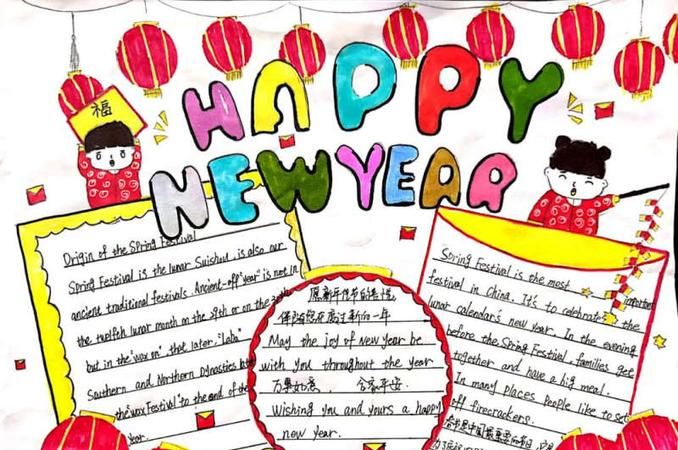 HAPPY
NEW YEAR
福
Origin of the Spring Festival
Spring Festival is the lunar Suishou, is also our
ancient traditional festivals. Ancient-off "year" is not in
the twelfth lunar month on the 29th or on the 30th
but in the "wax on" that later "Laba"
Southern and Northern Dynasties
the "wax Festival" to the end of the
year.
愿新年
新的一年
May the joy of New Year be
with you throughout the year
万事如意 合家平安
Wishing you and yours a happy
new year.
Spring Festival is the most important
festival in China. It's to celebrate the
lunar calendar's new year. In the evening
before the Spring Festival families get
together and have a big meal.
In many places people like to set
off firecrackers.
春节是中国最重要的节日